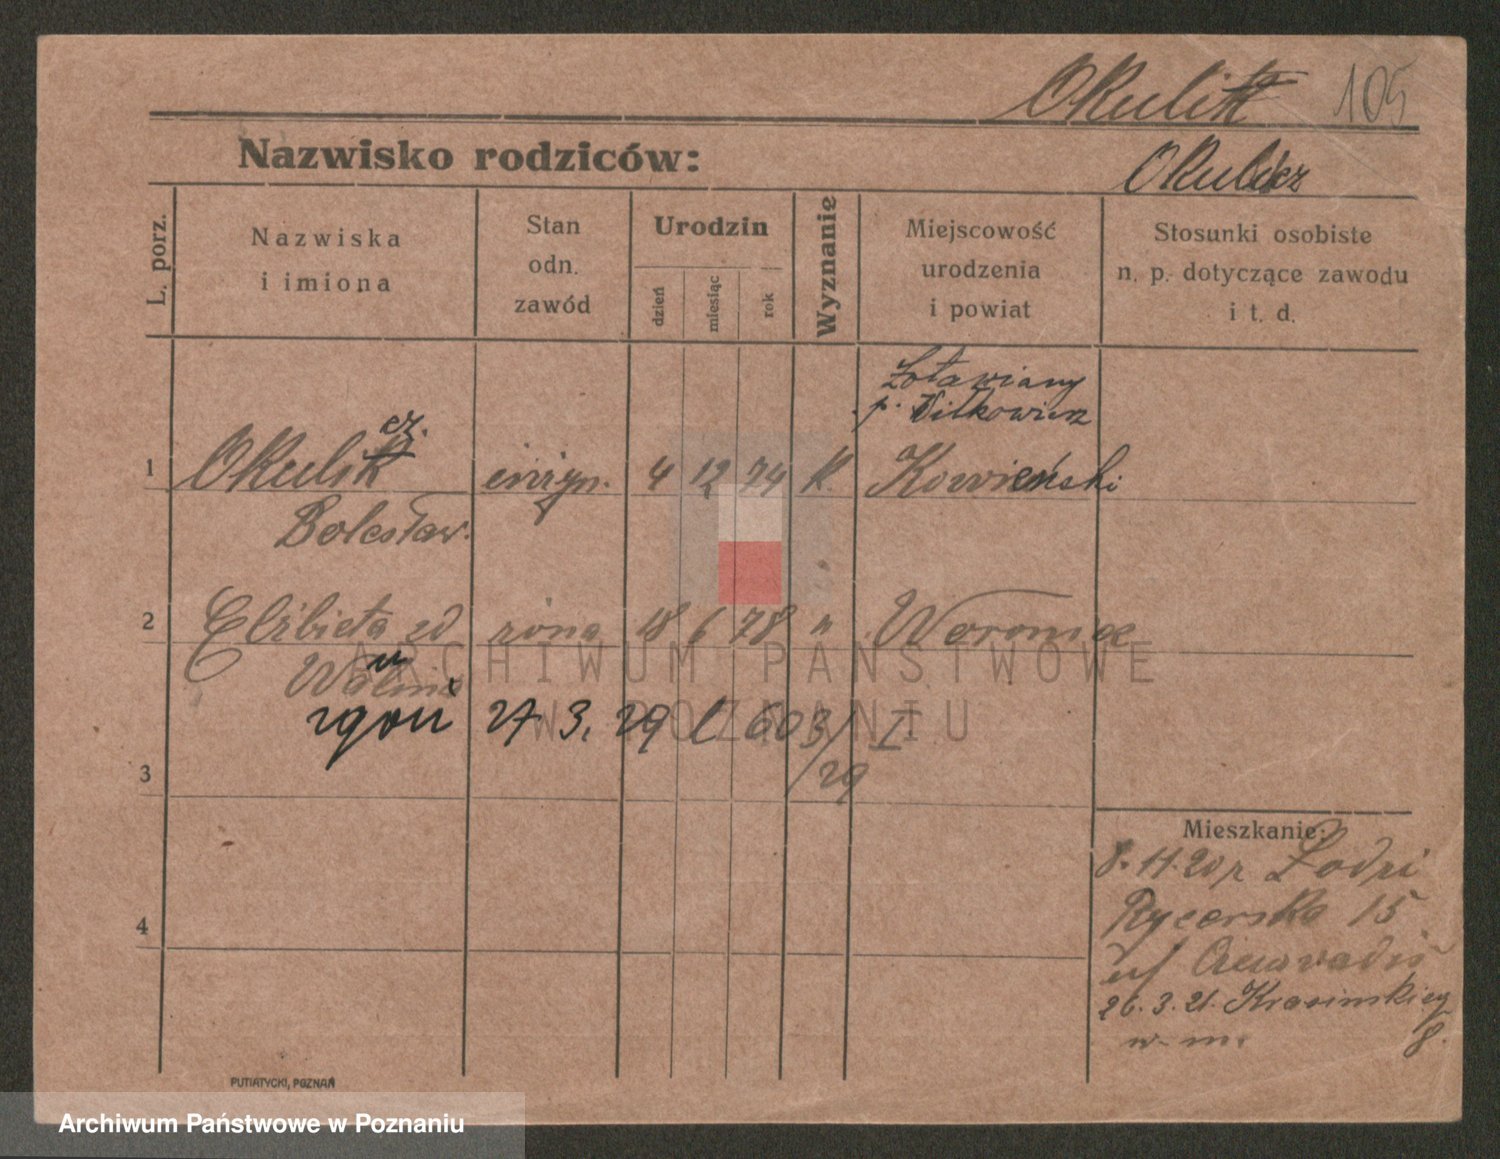 Okulik 105
Nazwisko rodziców: Okulicz
L. porz.
Nazwiska
i imiona
Stan
odn.
zawód
Urodzin
dzień
miesiąc
rok
Wyznanie
Miejscowość
urodzenia
i powiat
Stosunki osobiste
n. p. dotyczące zawodu
i t. d.
Żotawiany
p. Wiłkowierz
cz.
1 Okulik inżyn. 4 12 74 K. Kowieński
Bolesław.
2 Elżbieta zd żona 18 6 78 " Woronice
zgon 27 3. 29 l 603/ I
/29
3
4
Mieszkanie:
8.11.20 z Łodzi
Rycerska 15
26.3.21. Krasińskiego
w-m. 8.
PUTIATYCKI, POZNAŃ
ARCHIWUM PAŃSTWOWE
W POZNANIU
Archiwum Państwowe w Poznaniu